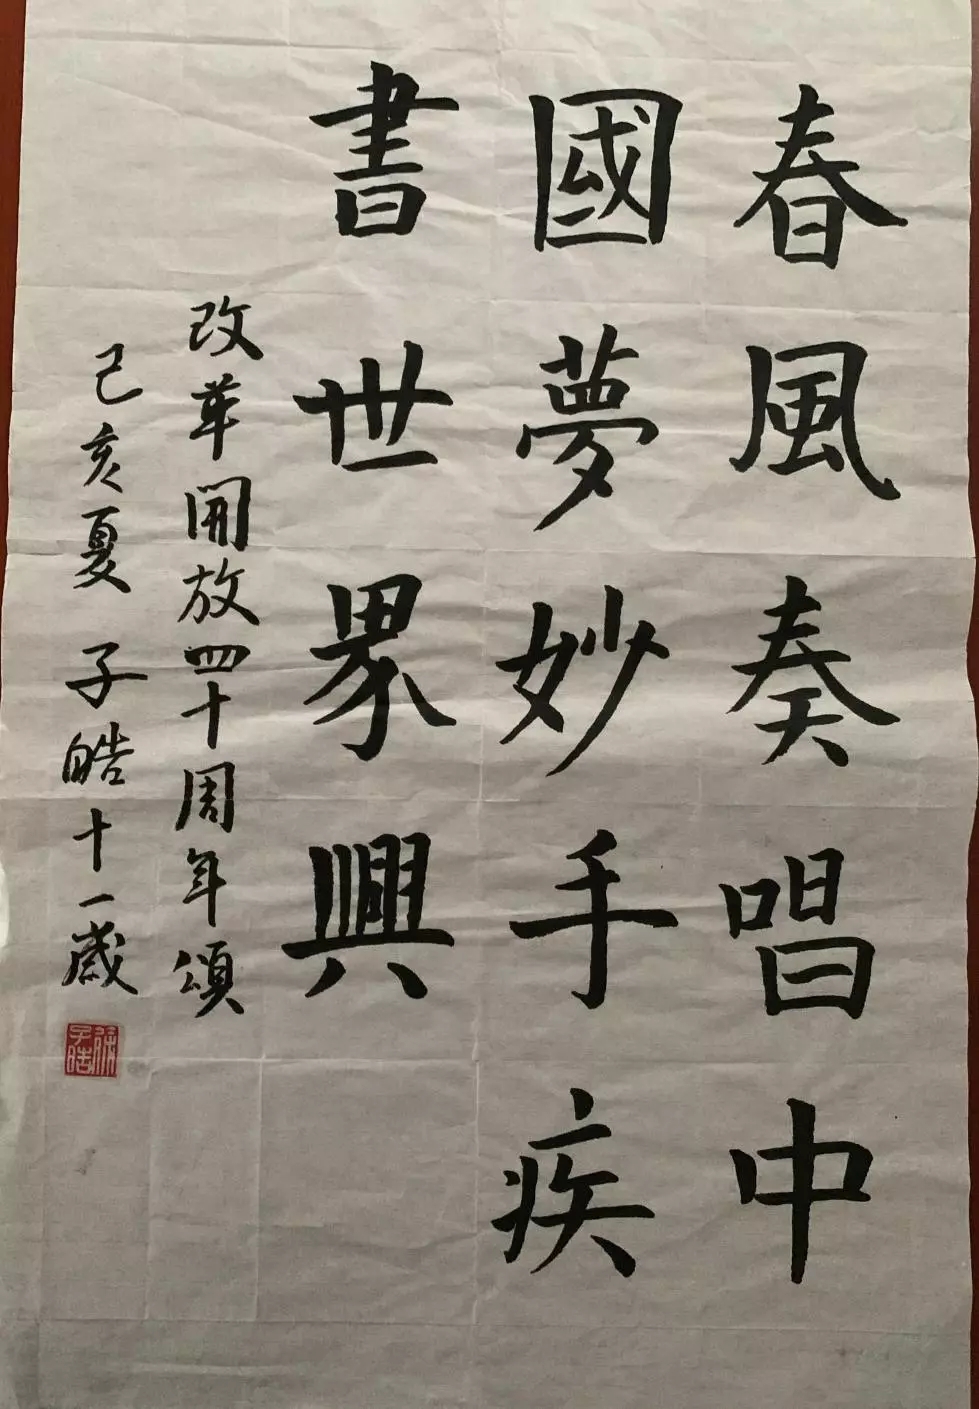 春風奏唱中
國夢妙手疾
書世界興
改革開放四十周年頌
己亥夏 子皓十一歲